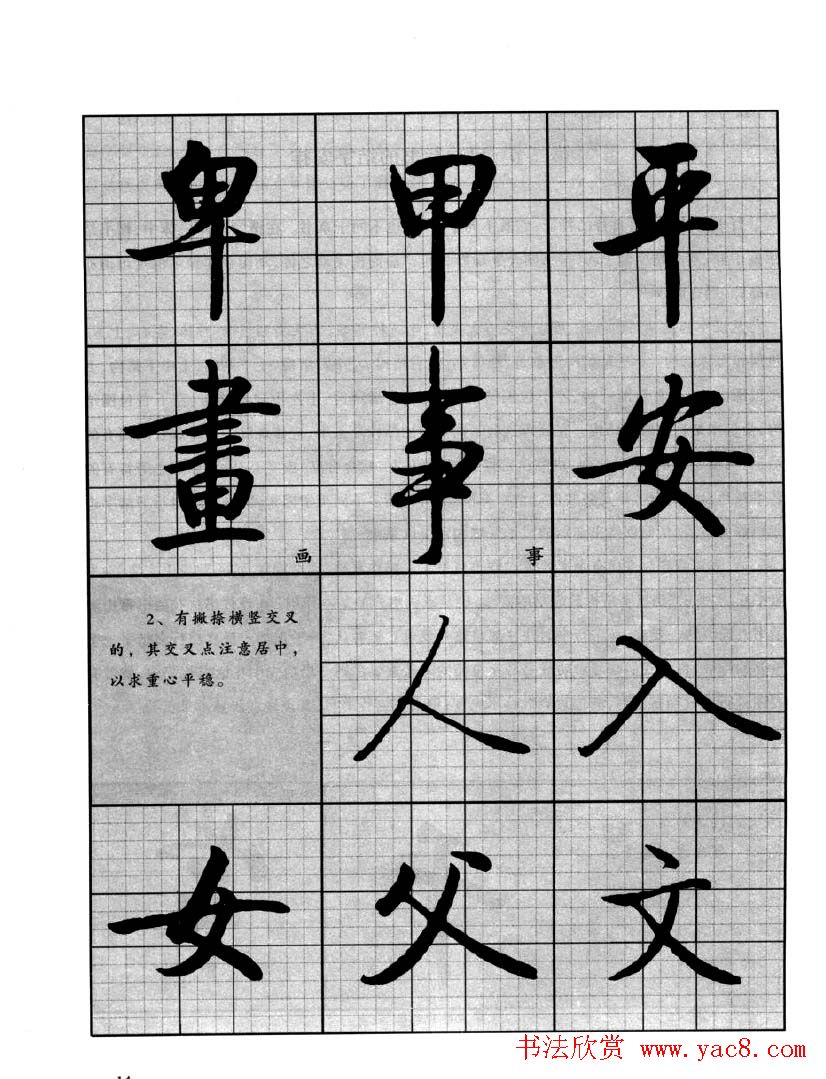 卑 甲 平
畫 事 安
画 事
2、有撇捺横竖交叉
的，其交叉点注意居中，
以求重心平稳。
人 入
女 父 文
书法欣赏 www.yac8.com